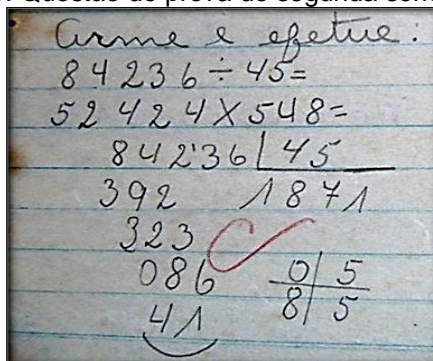 Arme e efetue:
84236÷45=
52424X548=
84236 | 45
392 1871
323
086 0 | 5
41 8 | 5